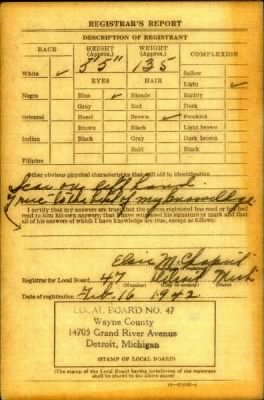 REGISTRAR'S REPORT
DESCRIPTION OF REGISTRANT
RACE HEIGHT (Approx.) WEIGHT (Approx.) COMPLEXION
White ✓ 5'5" 135 Sallow
EYES HAIR Light ✓
Negro Blue ✓ Blonde Ruddy
Gray Red Dark
Oriental Hazel Brown ✓ Freckled
Brown Black Light brown
Indian Black Gray Dark brown
Bald Black
Filipino
Other obvious physical characteristics that will aid in identification
Scar on left hand
True to the best of my knowledge
I certify that my answers are true; that the person registered has read or has had
read to him his own answers; that I have witnessed his signature or mark and that
all of his answers of which I have knowledge are true, except as follows:
M.
Registrar for Local Board 47 Detroit Mich
(Number) (City or county) (State)
Date of registration Feb. 16 1942
LOCAL BOARD NO. 47
Wayne County
14705 Grand River Avenue
Detroit, Michigan
(STAMP OF LOCAL BOARD)
(The stamp of the Local Board having jurisdiction of the registrant
shall be placed in the above space.)